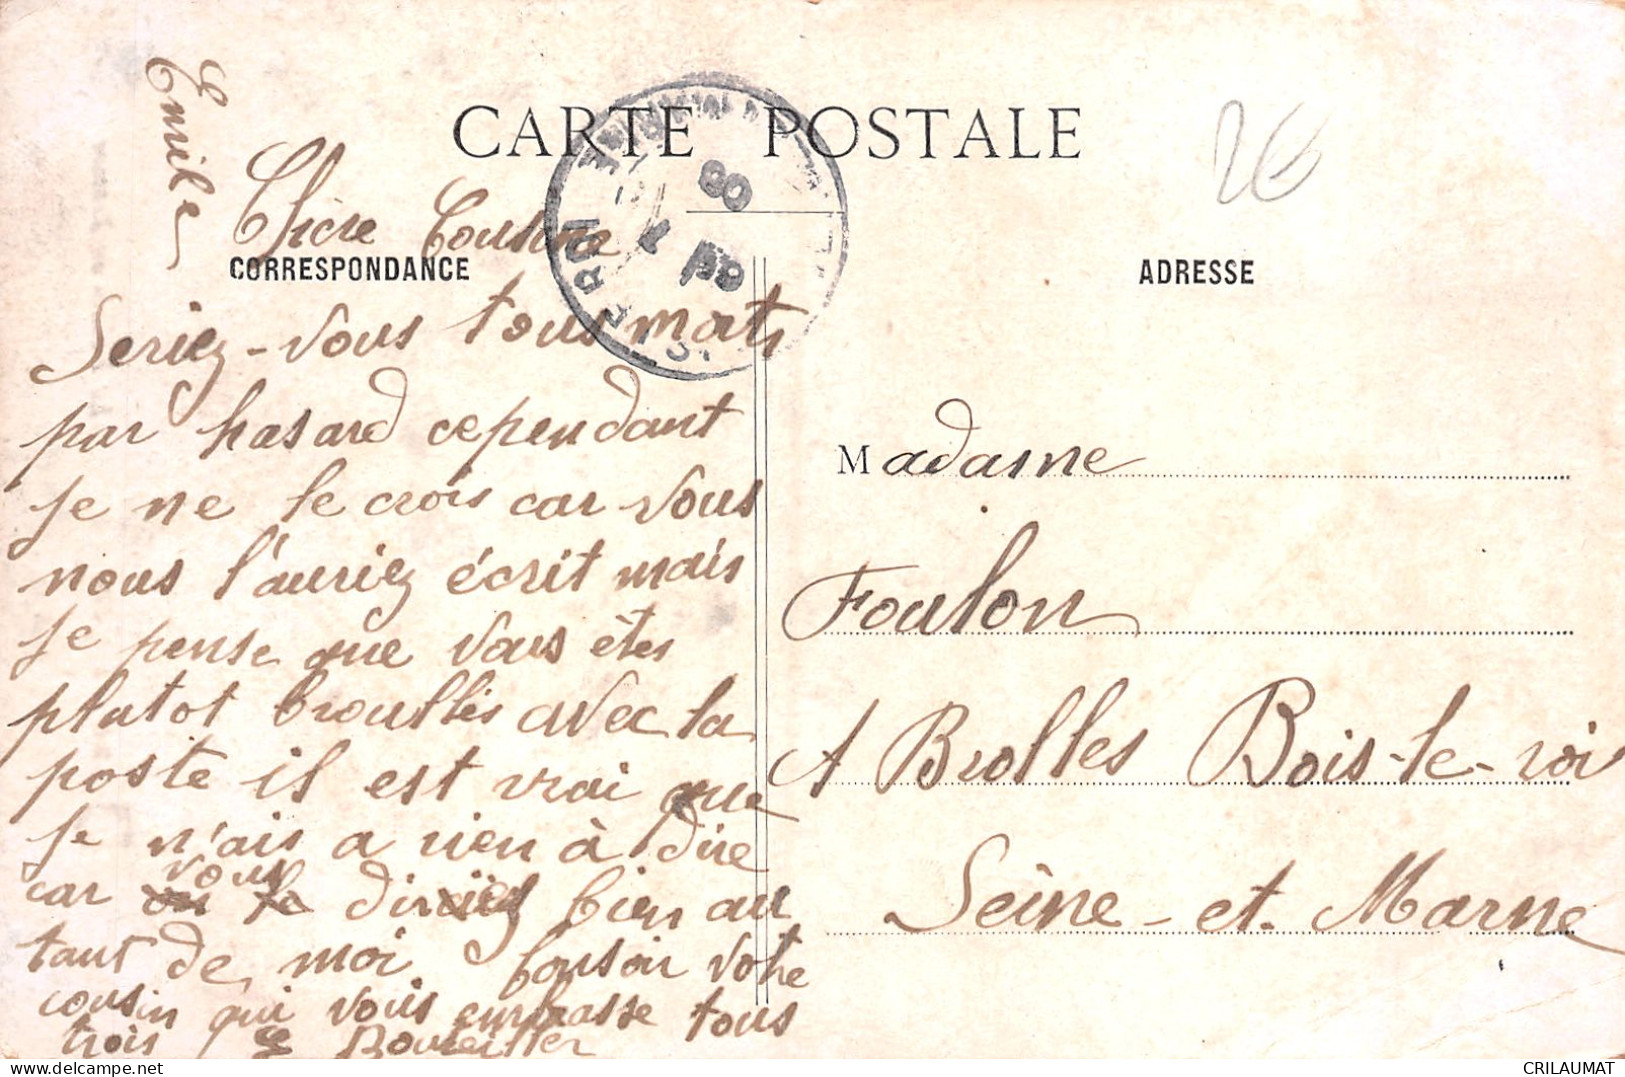 CARTE POSTALE
2€
CORRESPONDANCE
ADRESSE
Emile
Chère Cousine
Seriez-vous tous morts
par hasard cependant
je ne le crois car vous
nous l'auriez écrit mais
je pense que vous êtes
plutot brouillés avec la
poste il est vrai que
je n'ais a rien à dire
car vous diriez bien au
tant de moi bonsoir votre
cousin qui vous embrasse tous
trois
Madame
Foulon
A Brolles Bois-le-roi
Seine-et-Marne
delcampe.net
CRILAUMAT